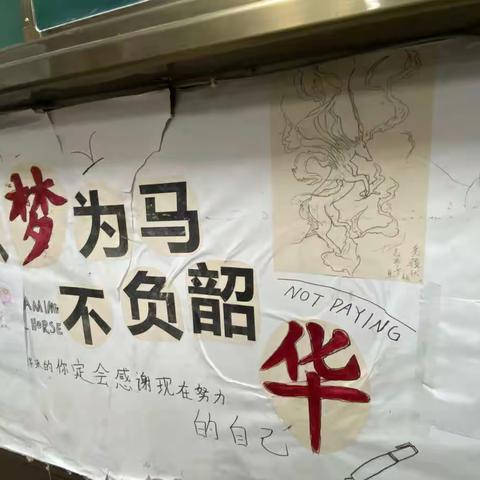 梦为马
不负韶
华
AMING
HORSE
NOT PAYING
来的你定会感谢现在努力
的自己